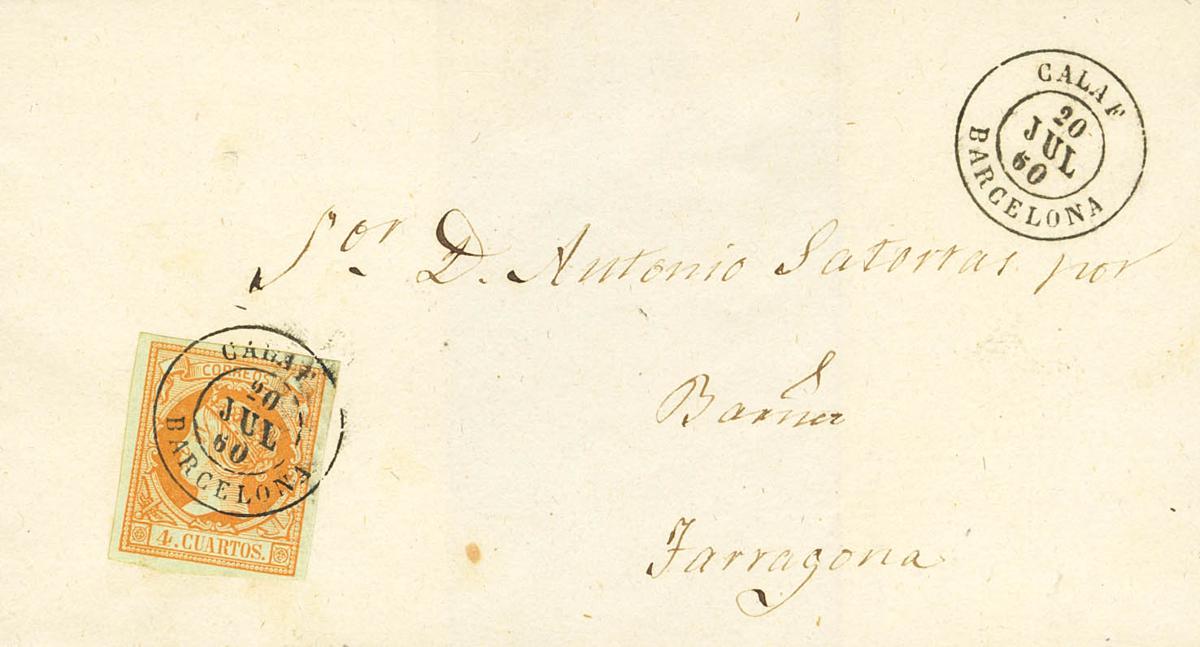 CALAF
20
JUL
60
BARCELONA
Sor D. Antonio Satorras por
Tarragona
CALAF
20
JUL
60
BARCELONA
CORREOS
4. CUARTOS.